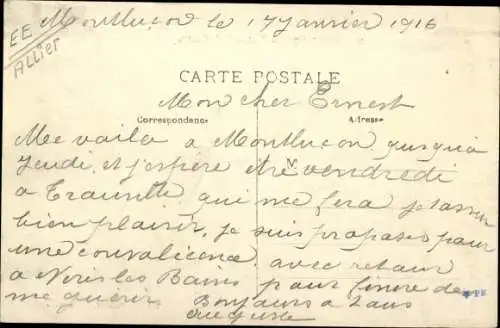 EE
ALLIER
Montluçon le 17 Janvier 1916
CARTE POSTALE
Mon cher Ernest
Correspondance
Adresse
Me voila a Montluçon jusqu'a
Jeudi, et j'espère être vendredi
a qui me fera je t'assure
bien plaisir, je suis proposer pour
une convalicence avec retour
a Neris les Bains pour finire de
me guérir Bonjours a tous
Auguste